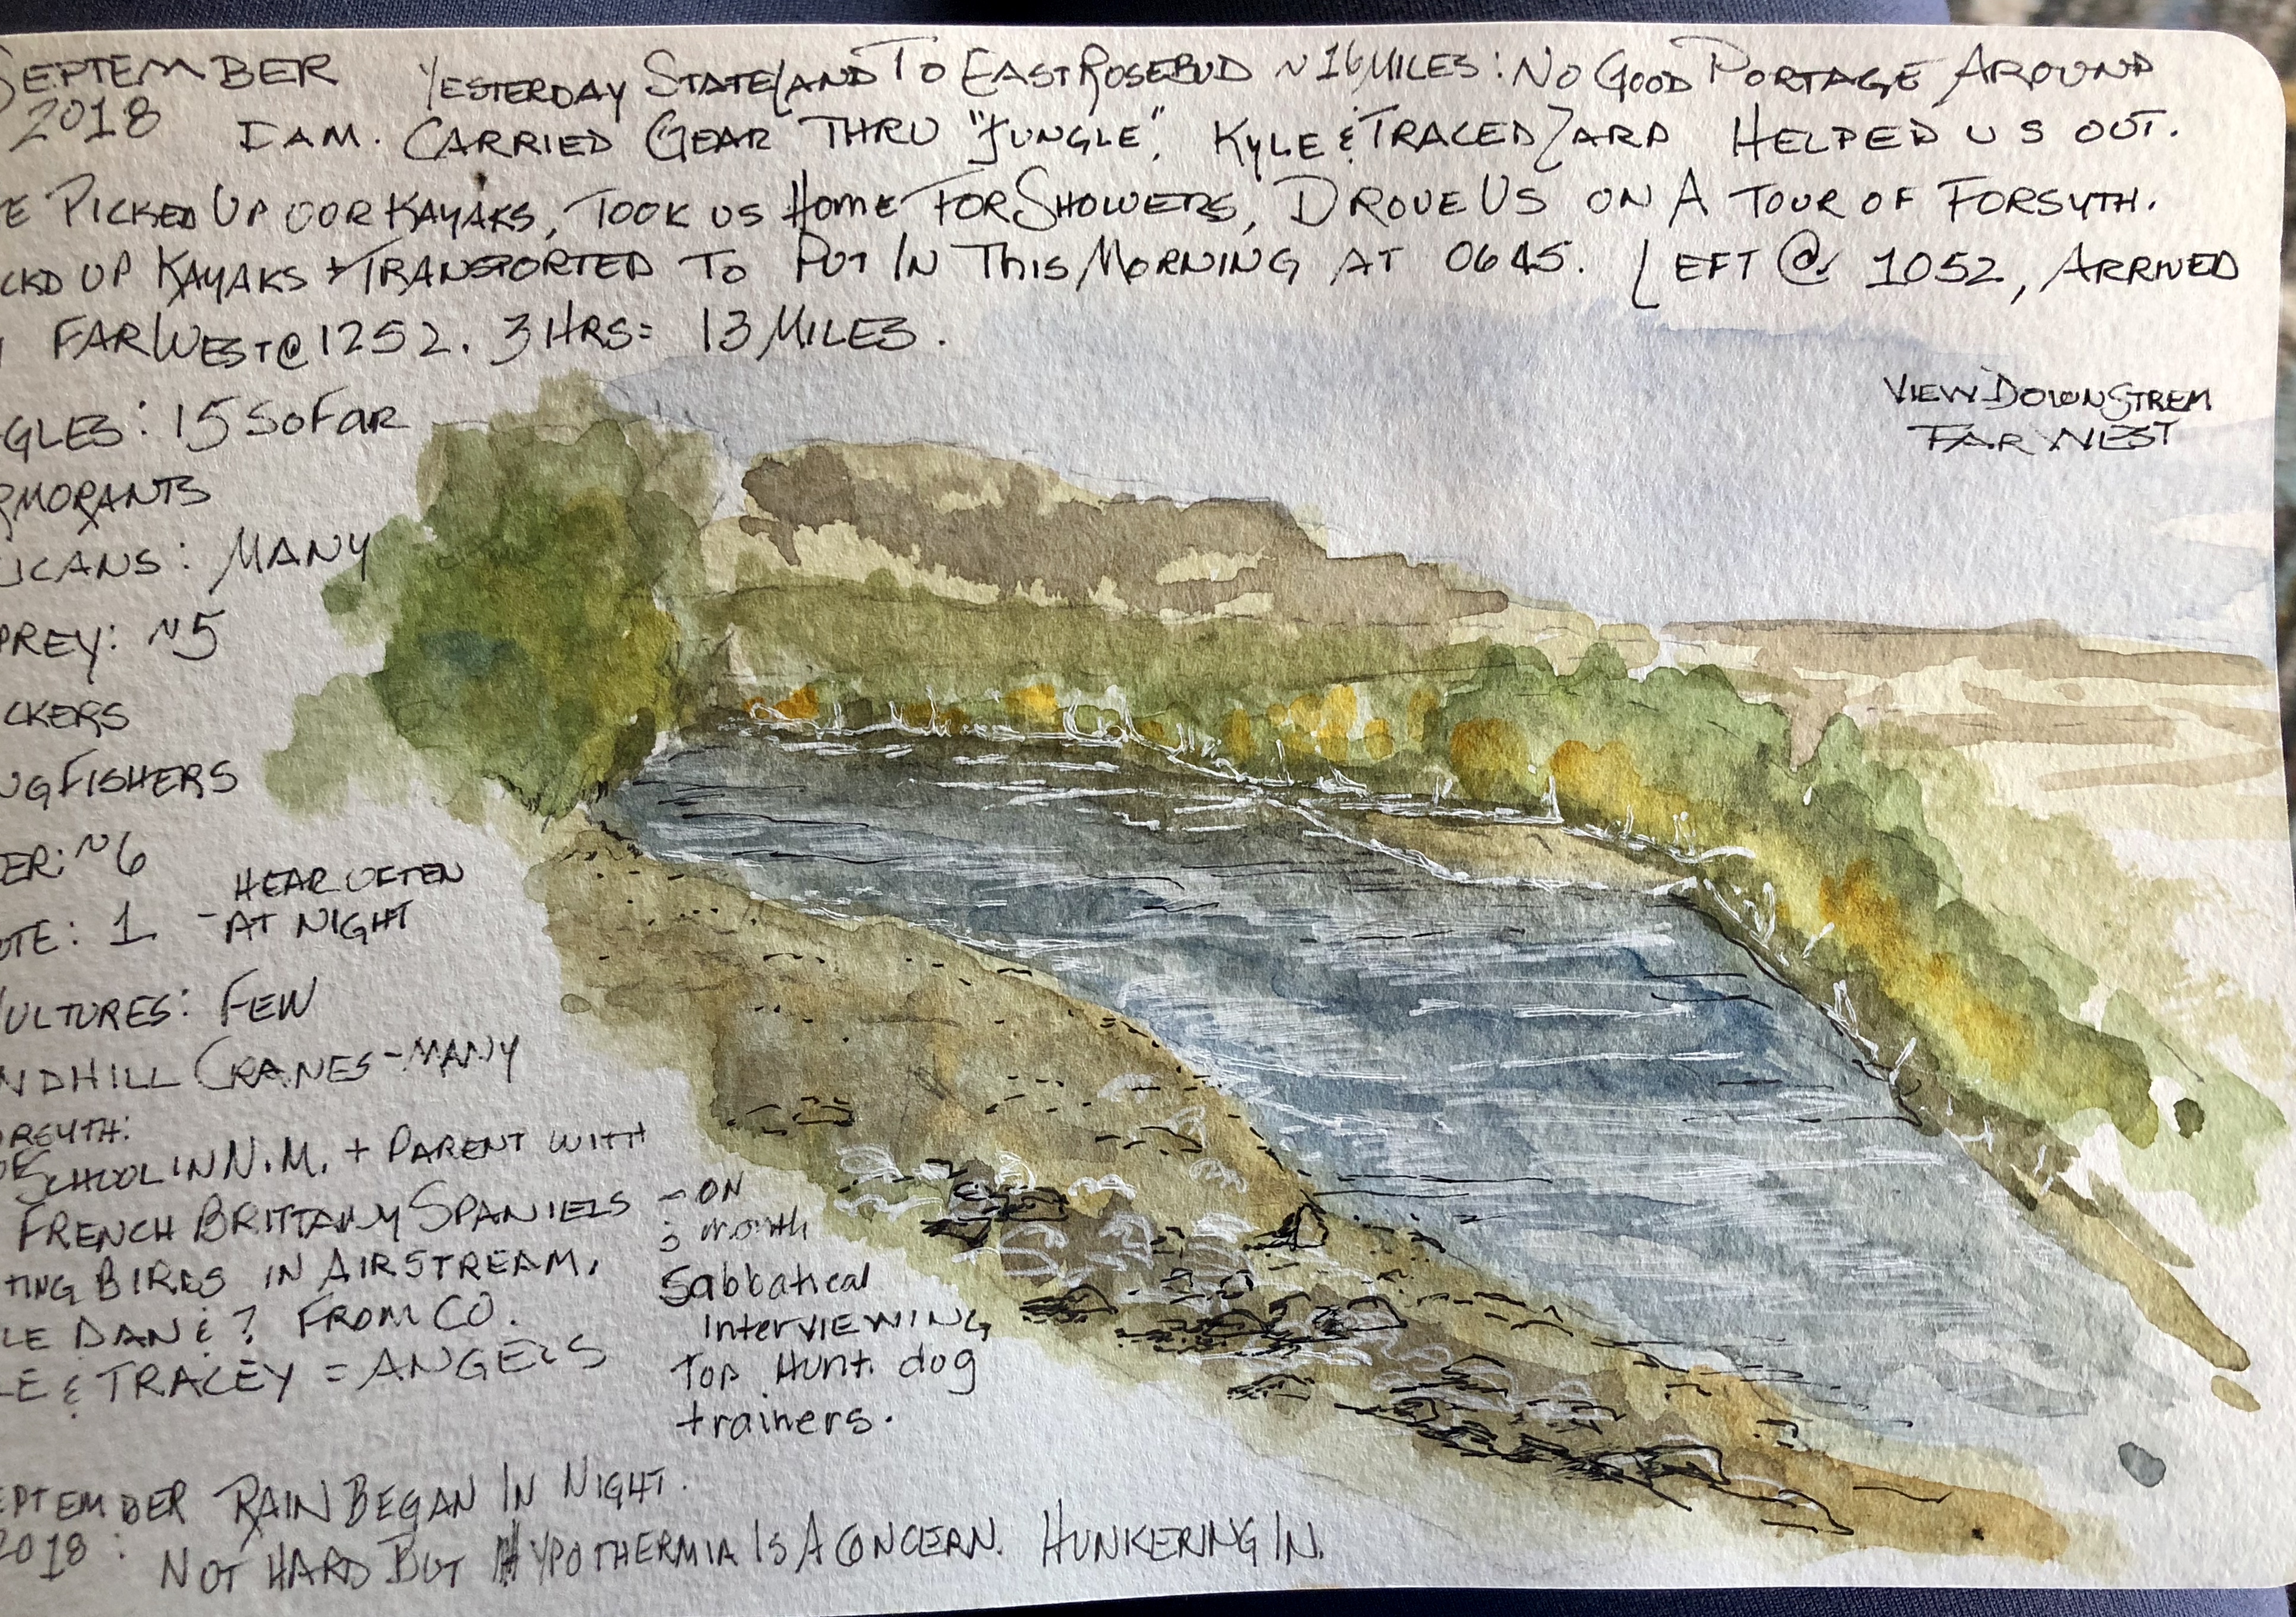 SEPTEMBER YESTERDAY STATELAND TO EAST ROSEBUD ~16 MILES: NO GOOD PORTAGE AROUND
2018 DAM. CARRIED GEAR THRU "JUNGLE". KYLE & TRACED ZARD HELPED US OUT.
E PICKED UP OUR KAYAKS, TOOK US HOME FOR SHOWERS, DROVE US ON A TOUR OF FORSYTH.
CKD UP KAYAKS + TRANSPORTED TO PUT IN THIS MORNING AT 0645. LEFT @ 1052, ARRIVED
FAR WEST @ 1252. 3 HRS= 13 MILES.
VIEW DOWNSTREM
FAR WEST
GLES: 15 SO FAR
RMORANTS
ICANS: MANY
PREY: ~5
CKERS
NGFISHERS
ER: ~6
OTE: 1 - HEAR OFTEN
AT NIGHT
ULTURES: FEW
NDHILL CRANES - MANY
ORSYTH:
SCHOOL IN N.M. + PARENT WITH
FRENCH BRITTANY SPANIELS
TING BIRDS IN AIRSTREAM.
LE DAN & ? FROM CO.
LE & TRACEY = ANGELS
- ON
3 month
Sabbatical
InterVIEWING
Top Hunt. dog
trainers.
EPTEMBER RAIN BEGAN IN NIGHT.
2018: NOT HARD BUT HYPOTHERMIA IS A CONCERN. HUNKERING IN.